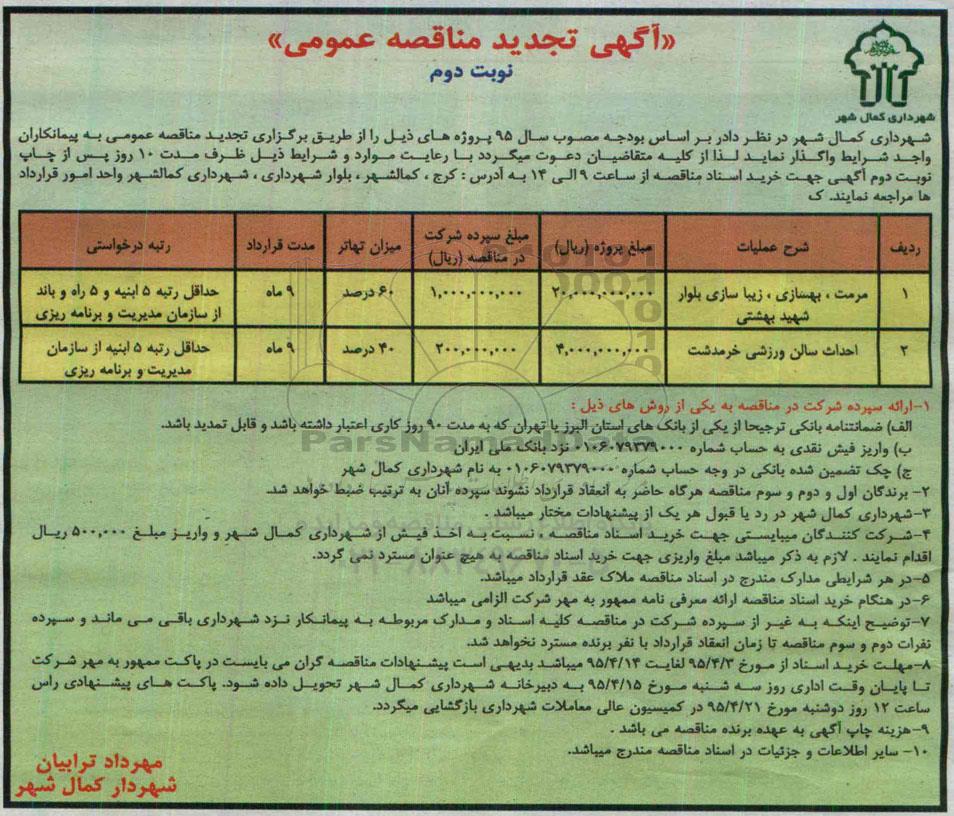 «آگهی تجدید مناقصه عمومی»
نوبت دوم
شهرداری کمال شهر
شهرداری کمال شهر در نظر دادر بر اساس بودجه مصوب سال ۹۵ پروژه های ذیل را از طریق برگزاری تجدید مناقصه عمومی به پیمانکاران
واجد شرایط واگذار نماید لذا از کلیه متقاضیان دعوت میگردد با رعایت موارد و شرایط ذیل ظرف مدت ۱۰ روز پس از چاپ
نوبت دوم آگهی جهت خرید اسناد مناقصه از ساعت ۹ الی ۱۴ به آدرس : کرج ، کمالشهر ، بلوار شهرداری ، شهرداری کمالشهر واحد امور قرارداد
ها مراجعه نمایند. ک
ردیف شرح عملیات مبلغ پروژه (ریال) مبلغ سپرده شرکت در مناقصه (ریال) میزان تهاتر مدت قرارداد رتبه درخواستی
۱ مرمت ، بهسازی ، زیبا سازی بلوار شهید بهشتی ۲۰,۰۰۰,۰۰۰,۰۰۰ ۱,۰۰۰,۰۰۰,۰۰۰ ۶۰ درصد ۹ ماه حداقل رتبه ۵ ابنیه و ۵ راه و باند از سازمان مدیریت و برنامه ریزی
۲ احداث سالن ورزشی خرمدشت ۴,۰۰۰,۰۰۰,۰۰۰ ۲۰۰,۰۰۰,۰۰۰ ۴۰ درصد ۹ ماه حداقل رتبه ۵ ابنیه از سازمان مدیریت و برنامه ریزی
۱-ارائه سپرده شرکت در مناقصه به یکی از روش های ذیل :
الف) ضمانتنامه بانکی ترجیحا از یکی از بانک های استان البرز یا تهران که به مدت ۹۰ روز کاری اعتبار داشته باشد و قابل تمدید باشد.
ب) واریز فیش نقدی به حساب شماره ۰۱۰۶۰۷۹۳۷۹۰۰۰ نزد بانک ملی ایران
ج) چک تضمین شده بانکی در وجه حساب شماره ۰۱۰۶۰۷۹۳۷۹۰۰۰ به نام شهرداری کمال شهر
۲- برندگان اول و دوم و سوم مناقصه هرگاه حاضر به انعقاد قرارداد نشوند سپرده آنان به ترتیب ضبط خواهد شد.
۳-شهرداری کمال شهر در رد یا قبول هر یک از پیشنهادات مختار میباشد .
۴-شرکت کنندگان میبایستی جهت خرید اسناد مناقصه ، نسبت به اخذ فیش از شهرداری کمال شهر و واریز مبلغ ۵۰۰,۰۰۰ ریال
اقدام نمایند . لازم به ذکر میباشد مبلغ واریزی جهت خرید اسناد مناقصه به هیچ عنوان مسترد نمی گردد.
۵-در هر شرایطی مدارک مندرج در اسناد مناقصه ملاک عقد قرارداد میباشد.
۶-در هنگام خرید اسناد مناقصه ارائه معرفی نامه ممهور به مهر شرکت الزامی میباشد
۷-توضیح اینکه به غیر از سپرده شرکت در مناقصه کلیه اسناد و مدارک مربوطه به پیمانکار نزد شهرداری باقی می ماند و سپرده
نفرات دوم و سوم مناقصه تا زمان انعقاد قرارداد با نفر برنده مسترد نخواهد شد.
۸-مهلت خرید اسناد از مورخ ۹۵/۴/۳ لغایت ۹۵/۴/۱۴ میباشد بدیهی است پیشنهادات مناقصه گران می بایست در پاکت ممهور به مهر شرکت
تا پایان وقت اداری روز سه شنبه مورخ ۹۵/۴/۱۵ به دبیرخانه شهرداری کمال شهر تحویل داده شود. پاکت های پیشنهادی راس
ساعت ۱۲ روز دوشنبه مورخ ۹۵/۴/۲۱ در کمیسیون عالی معاملات شهرداری بازگشایی میگردد.
۹-هزینه چاپ آگهی به عهده برنده مناقصه می باشد .
۱۰- سایر اطلاعات و جزئیات در اسناد مناقصه مندرج میباشد.
مهرداد ترابیان
شهردار کمال شهر